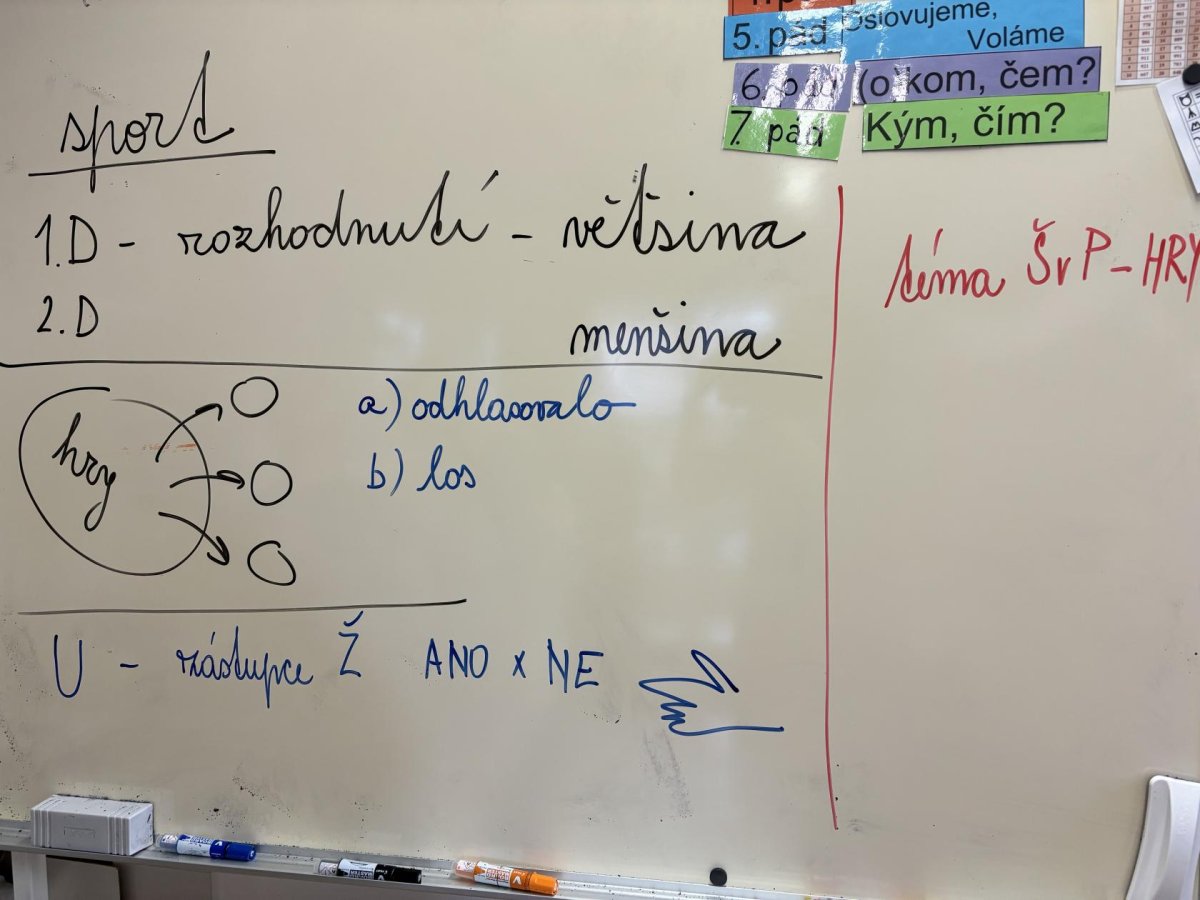 5. pád Oslovujeme,
Voláme
6. pád (o) kom, čem?
7. pád Kým, čím?
sport
1.D - rozhodnutí - většina
2.D menšina
téma ŠvP - HRY
hry
a) odhlasovalo
b) los
U - zástupce Ž ANO x NE